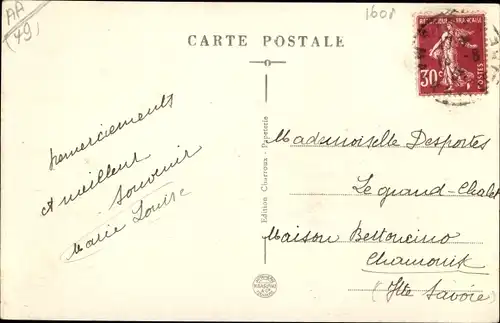 AA
(49)
1608
CARTE POSTALE
REPUBLIQUE FRANÇAISE
30c
POSTES
remerciements
et meilleur
souvenir
Marie Louise
Edition Cherroux - Papeterie
Mademoiselle Desportes
Le grand-Chalet
Maison Bettoncino
Chamonix
(Hte Savoie)